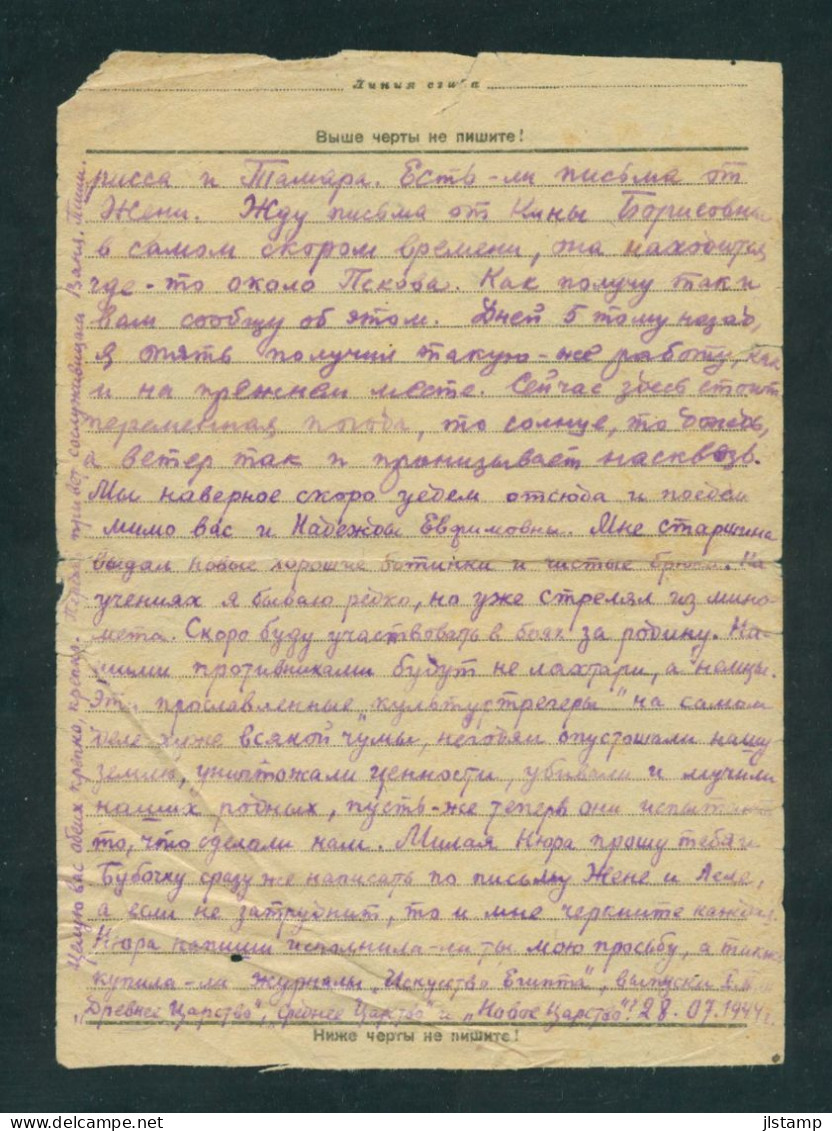 Линия сгиба
Выше черты не пишите!
рисса и Тамара. Есть-ли письма от
Жени. Жду письма от Кины Борисовны
в самом скором времени, она находится
где-то около Пскова. Как получу так и
вам сообщу об этом. Дней 5 тому назад,
я опять получил такую-же работу, как
и на прежнем месте. Сейчас здесь стоит
переменная погода, то солнце, то дождь,
а ветер так и пронизывает насквозь.
Мы наверное скоро уедем отсюда и поедем
мимо вас и Надежды Евфимовны. Мне старшина
выдал новые хорошие ботинки и чистые брюки. На
учениях я бываю редко, но уже стрелял из мино-
мета. Скоро буду участвовать в боях за родину. На-
шими противниками будут не лахтари, а немцы.
Эти прославленные „культуртрегеры" на самом
деле хуже всякой чумы, негодяи опустошали нашу
землю, уничтожали ценности, убивали и мучили
наших родных, пусть-же теперь они испытают
то, что сделали нам. Милая Нюра прошу тебя и
Бубочку сразу же написать по письму Жене и Леле,
а если не затруднит, то и мне черкните каждая.
Нюра напиши исполнила-ли ты, мою просьбу, а также
купила-ли журналы „Искусство Египта", выпуски
„Древнее Царство", „Среднее Царство" и „Новое Царство"? 28.07.1944 г.
Ниже черты не пишите!
Целую вас обеих крепко, крепко. привет сослуживицам Ваня. Пиши.
jlstamp